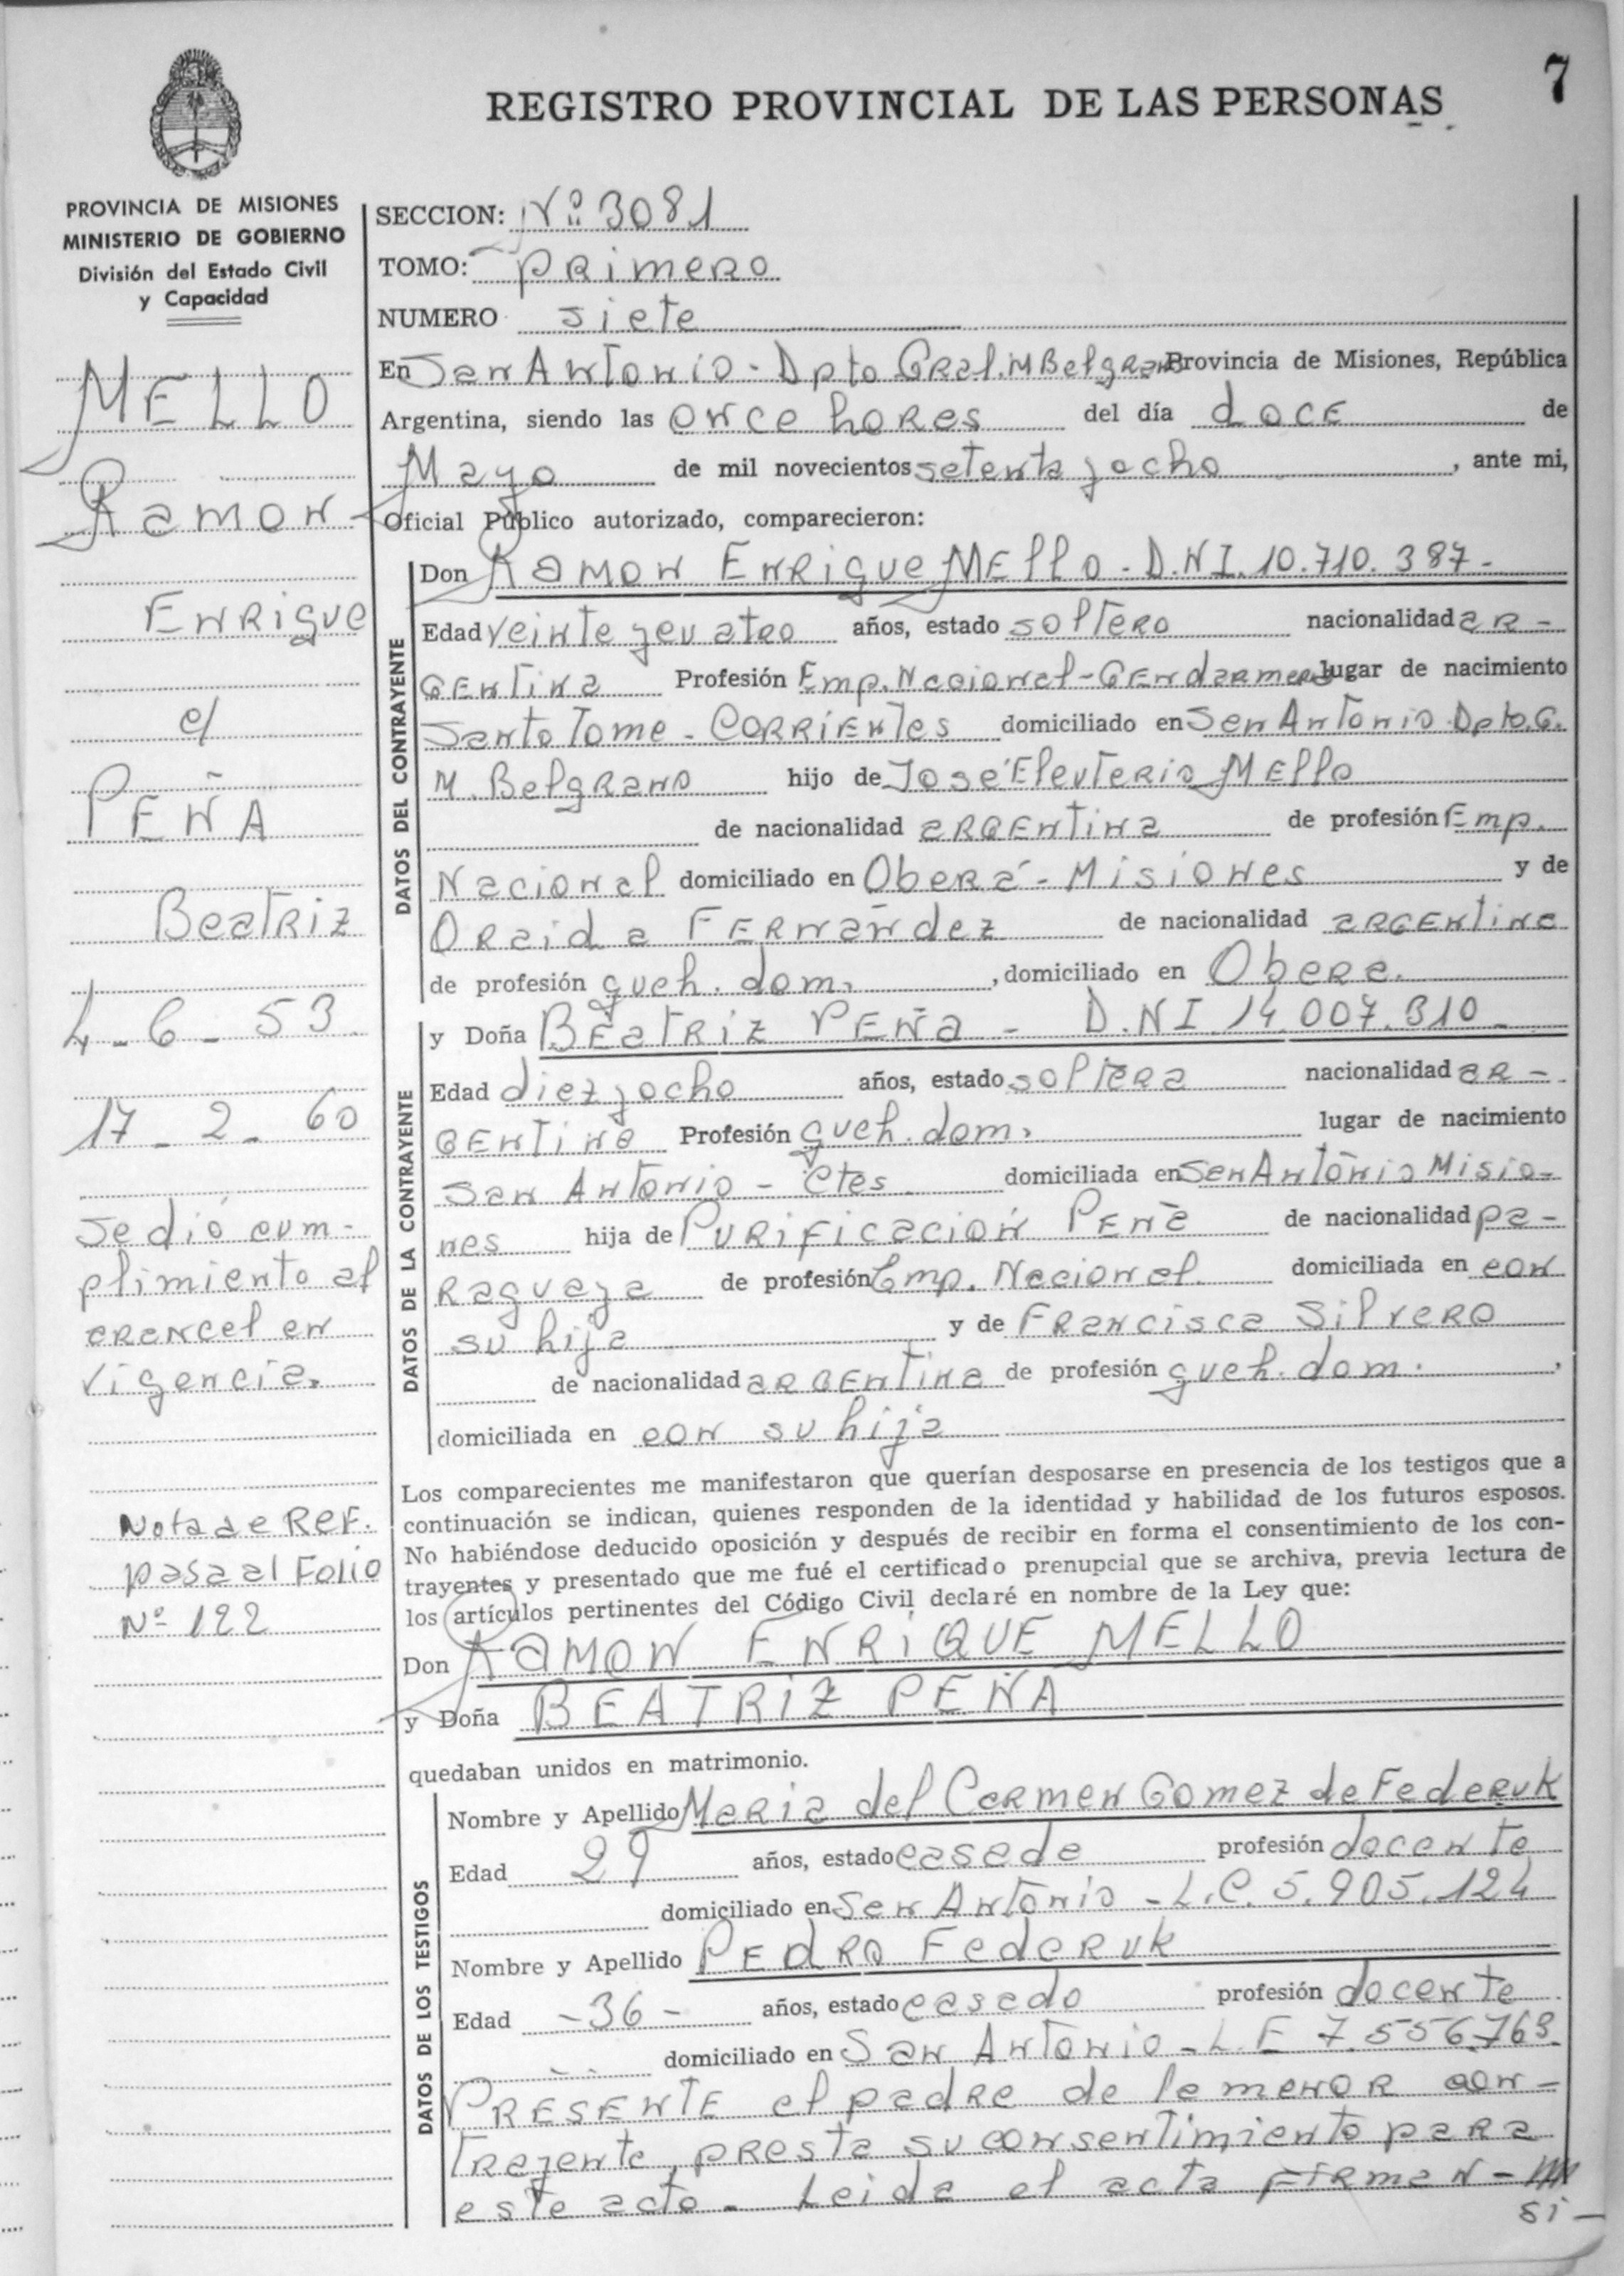 7
REGISTRO PROVINCIAL DE LAS PERSONAS
PROVINCIA DE MISIONES
MINISTERIO DE GOBIERNO
División del Estado Civil
y Capacidad
MELLO
Ramon
Enrique
c/
PEÑA
Beatriz
4-6-53
17-2-60
Se dió cum-
plimiento al
arancel en
vigencia.
Nota de Ref.
pasa al Folio
Nº 122
SECCION: Nº 3081
TOMO: Primero
NUMERO siete
En San Antonio - Dpto Gral. M Belgrano Provincia de Misiones, República
Argentina, siendo las once horas del día doce de
Mayo de mil novecientos setenta y ocho, ante mi,
Oficial Público autorizado, comparecieron:
DATOS DEL CONTRAYENTE
Don Ramon Enrique Mello - D.N.I. 10.710.387.-
Edad veinte y cuatro años, estado soltero nacionalidad ar-
gentina Profesión Emp. Nacional - Gendarmeria lugar de nacimiento
Santo Tome - Corrientes domiciliado en San Antonio Dpto. G.
M. Belgrano hijo de José Eleuterio Mello
de nacionalidad argentina de profesión Emp.
Nacional domiciliado en Oberá - Misiones y de
Oraida Fernández de nacionalidad argentina
de profesión queh. dom., domiciliado en Obera.
DATOS DE LA CONTRAYENTE
y Doña Beatriz Peña - D.N.I. 14.007.310-
Edad diez y ocho años, estado soltera nacionalidad ar-
gentina Profesión queh. dom. lugar de nacimiento
San Antonio - Ctes. domiciliada en San Antonio Misio-
nes hija de Purificación Peña de nacionalidad pa-
raguaya de profesión Emp. Nacional domiciliada en con
su hija y de Francisca Silvero
de nacionalidad argentina de profesión queh. dom.,
domiciliada en con su hija
Los comparecientes me manifestaron que querían desposarse en presencia de los testigos que a
continuación se indican, quienes responden de la identidad y habilidad de los futuros esposos.
No habiéndose deducido oposición y después de recibir en forma el consentimiento de los con-
trayentes y presentado que me fué el certificado prenupcial que se archiva, previa lectura de
los artículos pertinentes del Código Civil declaré en nombre de la Ley que:
Don RAMON ENRIQUE MELLO
y Doña BEATRIZ PEÑA
quedaban unidos en matrimonio.
DATOS DE LOS TESTIGOS
Nombre y Apellido Maria del Carmen Gomez de Federuk
Edad 29 años, estado casada profesión docente
domiciliado en San Antonio - L.C. 5.905.124
Nombre y Apellido Pedro Federuk
Edad -36- años, estado casado profesión docente
domiciliado en San Antonio - L.E 7.556.763.
Presente el padre de la menor con-
trayente, presta su consentimiento para
este acto. Leida el acta firman -
si-